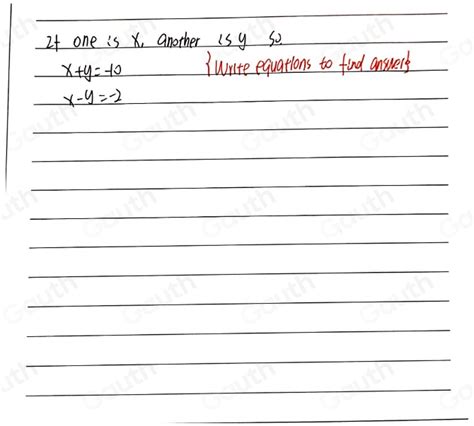 If one is x, another is y so.
x+y=-10 {Write equations to find answer}
x-y=-2
Gauth